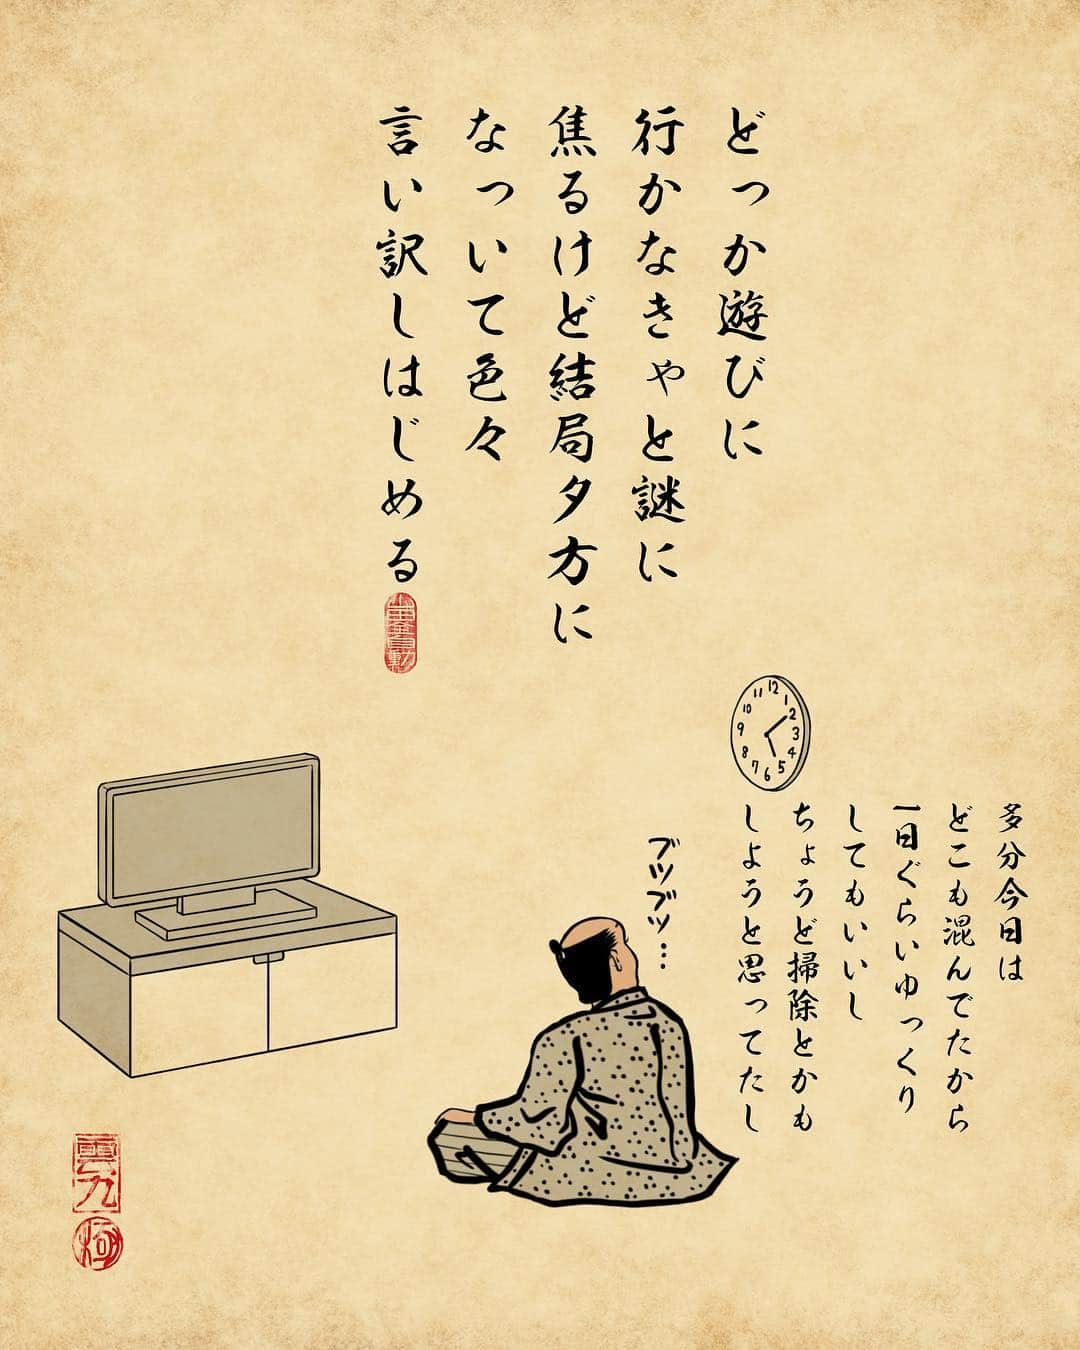 どっか遊びに
行かなきゃと謎に
焦るけど結局夕方に
なっいて色々
言い訳しはじめる
多分今日は
どこも混んでたから
一日ぐらいゆっくり
してもいいし
ちょうど掃除とかも
しようと思ってたし
ブツブツ…
12
1
2
3
4
5
6
7
8
9
10
11